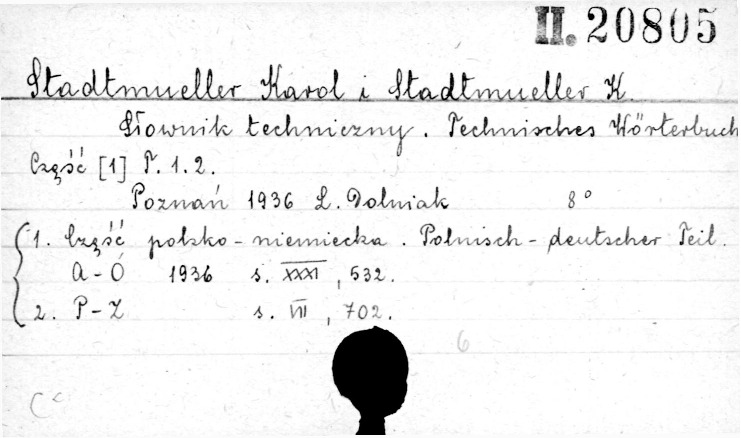 II. 20805
Stadtmueller Karol i Stadtmueller K.
Słownik techniczny. Technisches Wörterbuch
Część [1] T. 1. 2.
Poznań 1936 L. Dolniak 8°
1. Część polsko-niemiecka. Polnisch-deutscher Teil.
A-Ó 1936 s. XXXI, 532.
2. P-Z s. VII, 702.
6